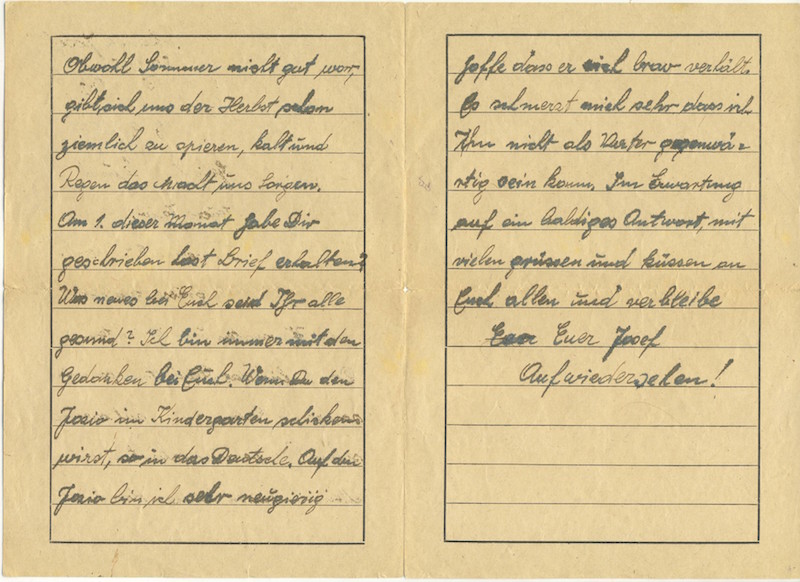 Obwohl Sommer nicht gut wor,
gibt sich uns der Herbst schon
ziemlich zu spieren, kalt und
Regen das macht uns Sorgen.
Am 1. dieser Monat habe Dir
geschrieben hast Brief erhalten?
Was neues bei Euch seid Ihr alle
gesund? Ich bin immer mit den
Gedanken bei Euch. Wenn Du den
Jozio im Kindergarten schicken
wirst, so in das Deutsche. Auf den
Jozio bin ich sehr neugierig
hoffe dass er sich brav verhält.
Es schmerzt mich sehr dass ich
Ihn nicht als Vater gegenwä=
rtig sein kann. Im Erwartung
auf ein baldiges Antwort, mit
vielen grüssen und küssen an
Euch allen und verbleibe
Euer Josef
Aufwiedersehen!